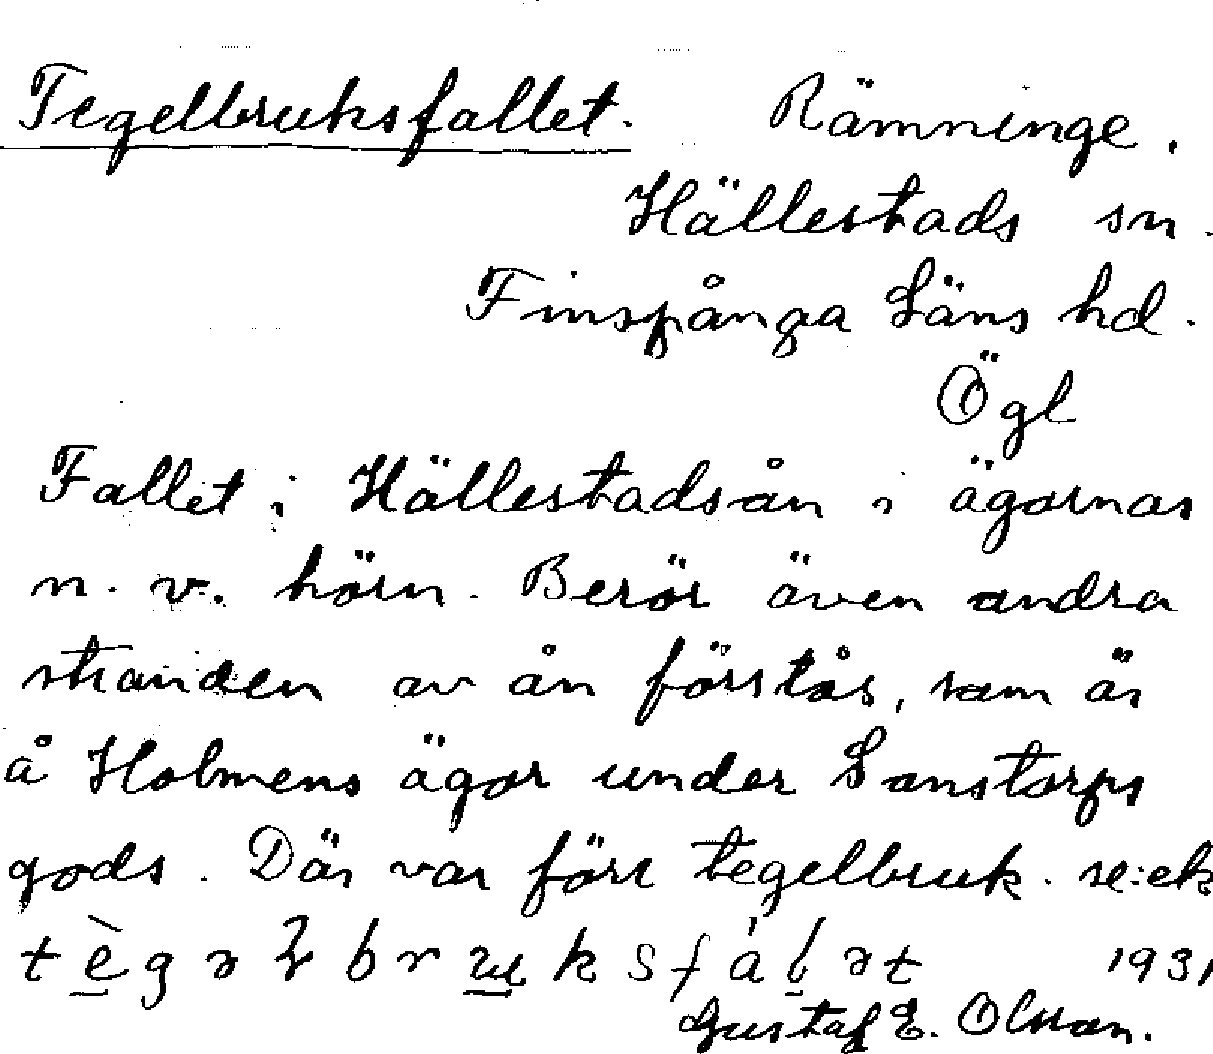 Tegelbruksfallet. Rämninge.
Hällestads sn.
Finspånga Läns hd.
Ögl
Fallet i Hällestadsån i ägornas
n. v. hörn. Berör även andra
stranden av ån förstås, som är
å Holmens ägor under Sonstorps
gods. Där var förr tegelbruk. se:ek
1931
Gustaf E. Olsson.